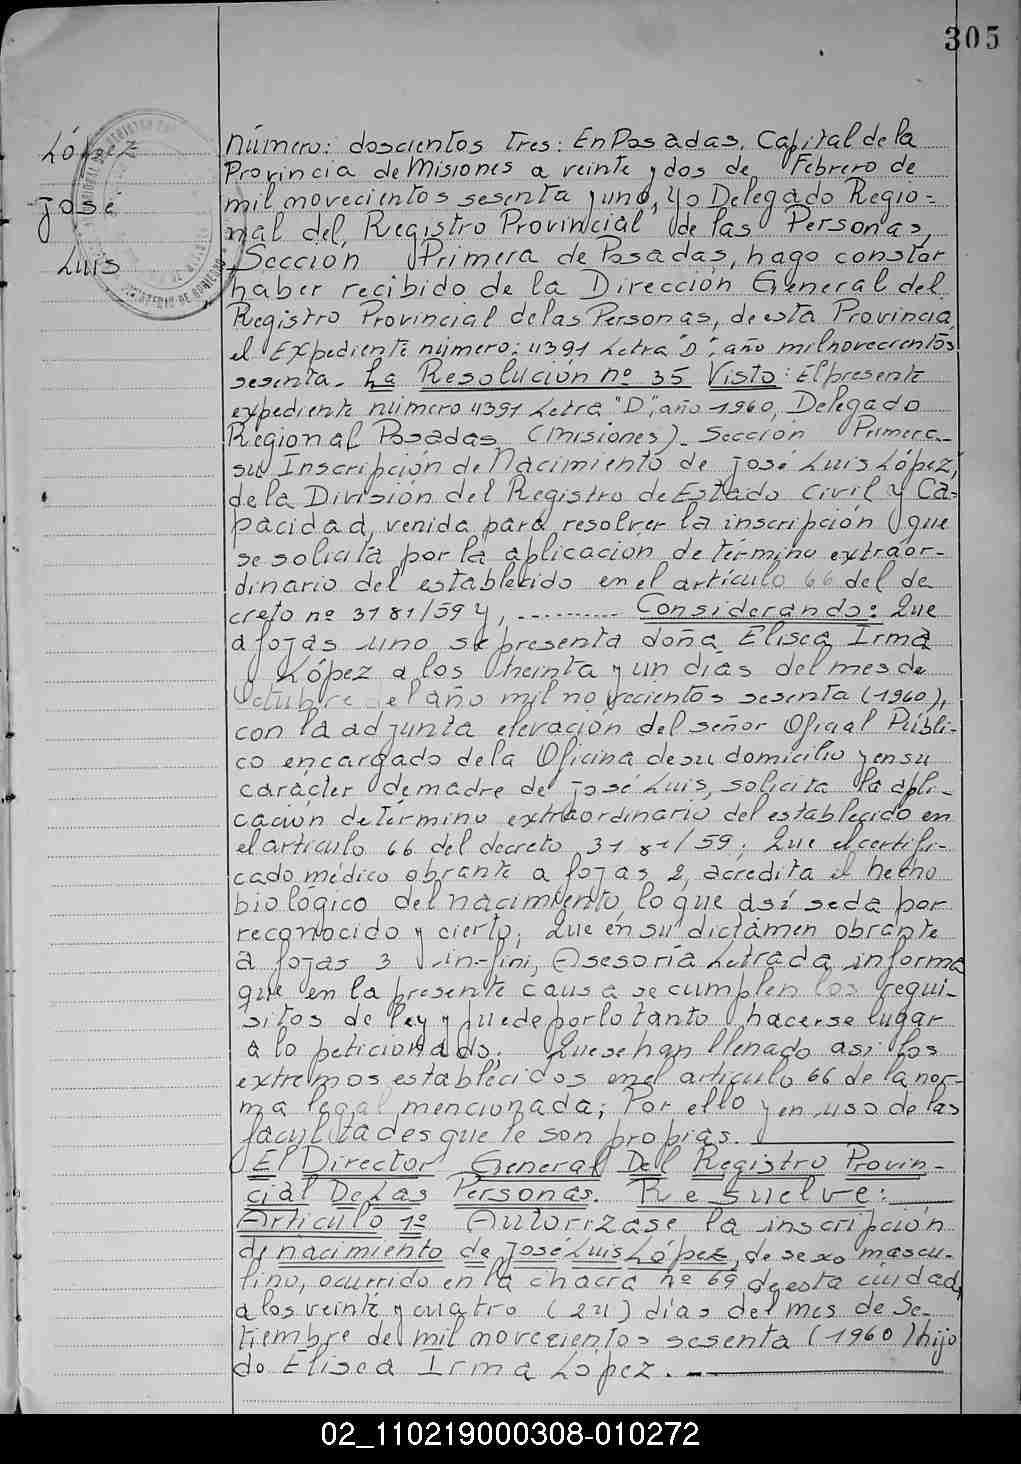 305
López
José
Luis
número: doscientos tres: En Posadas, Capital de la
Provincia de Misiones a veinte y dos de Febrero de
mil novecientos sesenta y uno, yo Delegado Regio=
nal del Registro Provincial de las Personas,
Sección Primera de Posadas, hago constar
haber recibido de la Dirección General del
Registro Provincial de las Personas, de esta Provincia,
el Expediente número: 4391 Letra "D", año mil novecientos
sesenta. La Resolución nº 35 Visto: El presente
expediente número 4391 Letra "D", año 1960, Delegado
Regional Posadas (Misiones). Sección Primera-
su Inscripción de Nacimiento de José Luis López,
de la División del Registro de Estado Civil y Ca=
pacidad, venida para resolver la inscripción que
se solicita por la aplicación de término extraor-
dinario del establecido en el artículo 66 del de
creto nº 3181/59 y, .......... Considerando: Que
a fojas uno se presenta doña Elisea Irma
López a los treinta y un días del mes de
Octubre del año mil novecientos sesenta (1960),
con la adjunta elevación del señor Oficial Públi-
co encargado de la Oficina de su domicilio y en su
carácter de madre de José Luis, solicita la apli-
cación de término extraordinario del establecido en
el artículo 66 del decreto 3181/59; Que el certifi-
cado médico obrante a fojas 2, acredita el hecho
biológico del nacimiento, lo que así se da por
reconocido y cierto; Que en su dictámen obrante
a fojas 3 in-fini, Asesoría Letrada informa
que en la presente causa se cumplen los requi-
sitos de ley y puede por lo tanto hacerse lugar
a lo peticionado; Que se han llenado así los
extremos establecidos en el artículo 66 de la nor-
ma legal mencionada; Por ello y en uso de las
facultades que le son propias.
El Director General Del Registro Provin-
cial De Las Personas. Resuelve:
Artículo 1º Autorizase la inscripción
de nacimiento de José Luis López, de sexo mascu-
lino, ocurrido en la chacra nº 69 de esta ciudad,
a los veinte y cuatro (24) días del mes de Se-
tiembre de mil novecientos sesenta (1960) hijo
de Elisea Irma López.
02_110219000308-010272